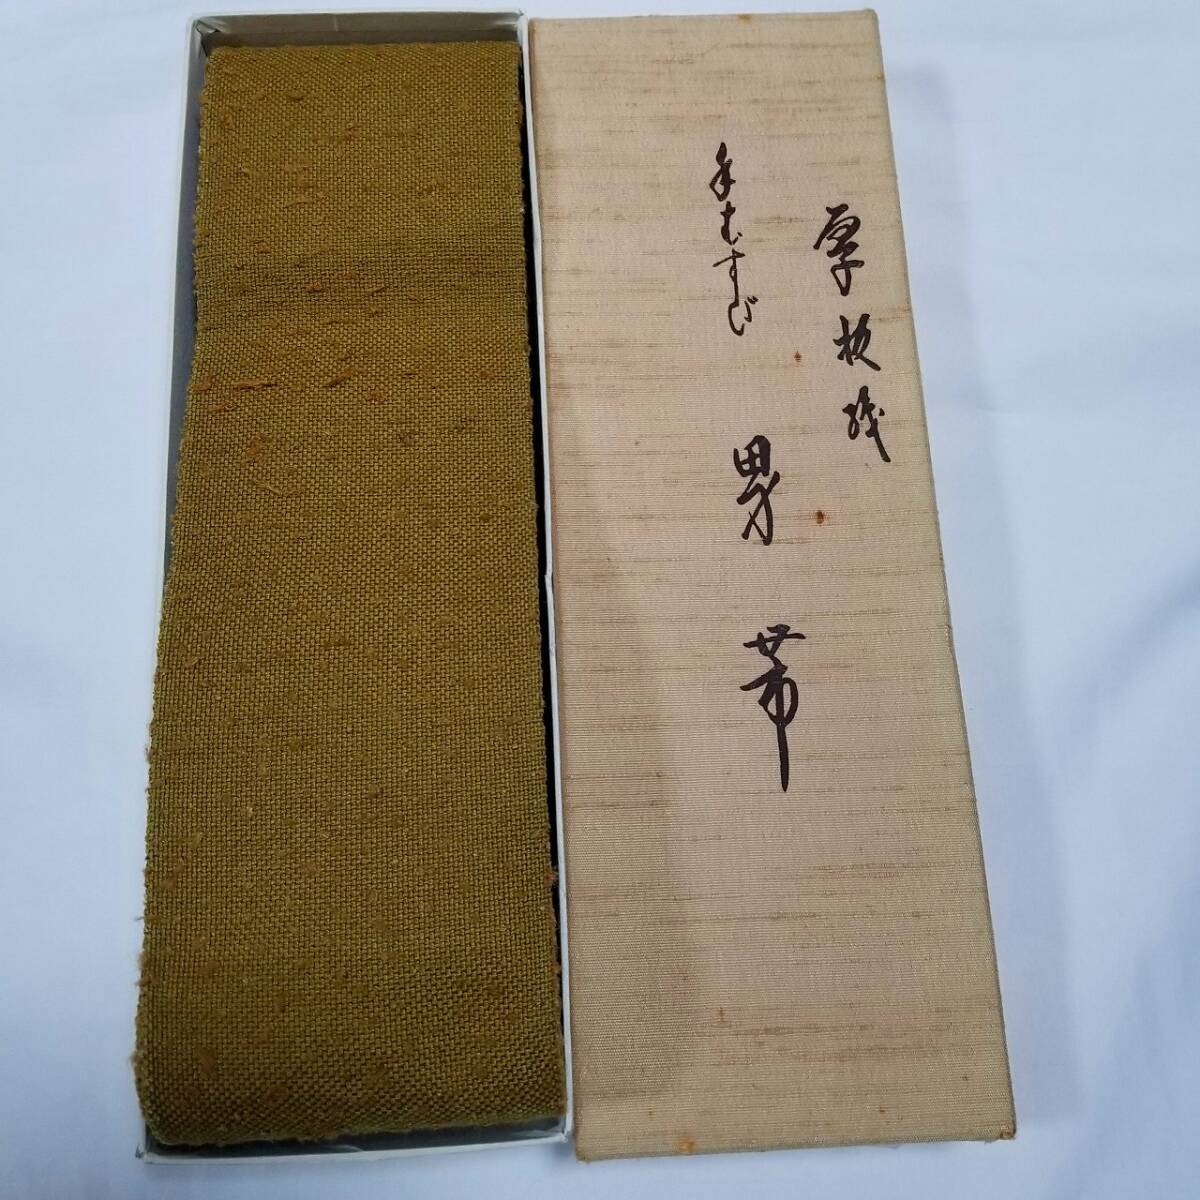 厚板織
手むすび
男帯